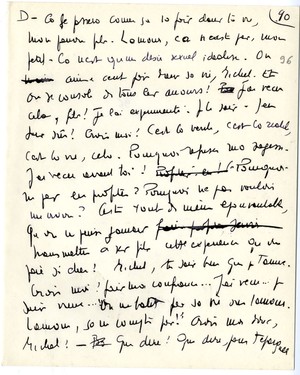 D - Ça se passera comme ça 10 fois dans ta vie, (90)
mon pauvre fils. L'amour, ça n'existe pas, mon
petit - Ce n'est qu'un désir sexuel idéalisé. On 96
aime cent fois dans sa vie, Michel. Et
on se console de tous les amours! J'ai vécu
cela, fils! Je l'ai expérimenté. Je le sais - J'en
suis sûr! Crois-moi! C'est la vérité, c'est la réalité,
c'est la vie, cela. Pourquoi refuses ma sagesse.
J'ai vécu avant toi! Pourquoi
ne pas en profiter? Pourquoi ne pas vouloir
me croire? C'est tout de même épouvantable,
qu'on ne puisse jamais
transmettre à ses fils cette expérience qu'on
paie si cher! Michel, tu sais bien que je t'aime.
Crois-moi! fais-moi confiance... J'ai vécu... je
suis vieux... On ne bâtit pas sa vie sur l'amour.
L'amour, ça ne compte pas! Crois-moi donc,
Michel! - Que dire! Que dire pour t'épargner